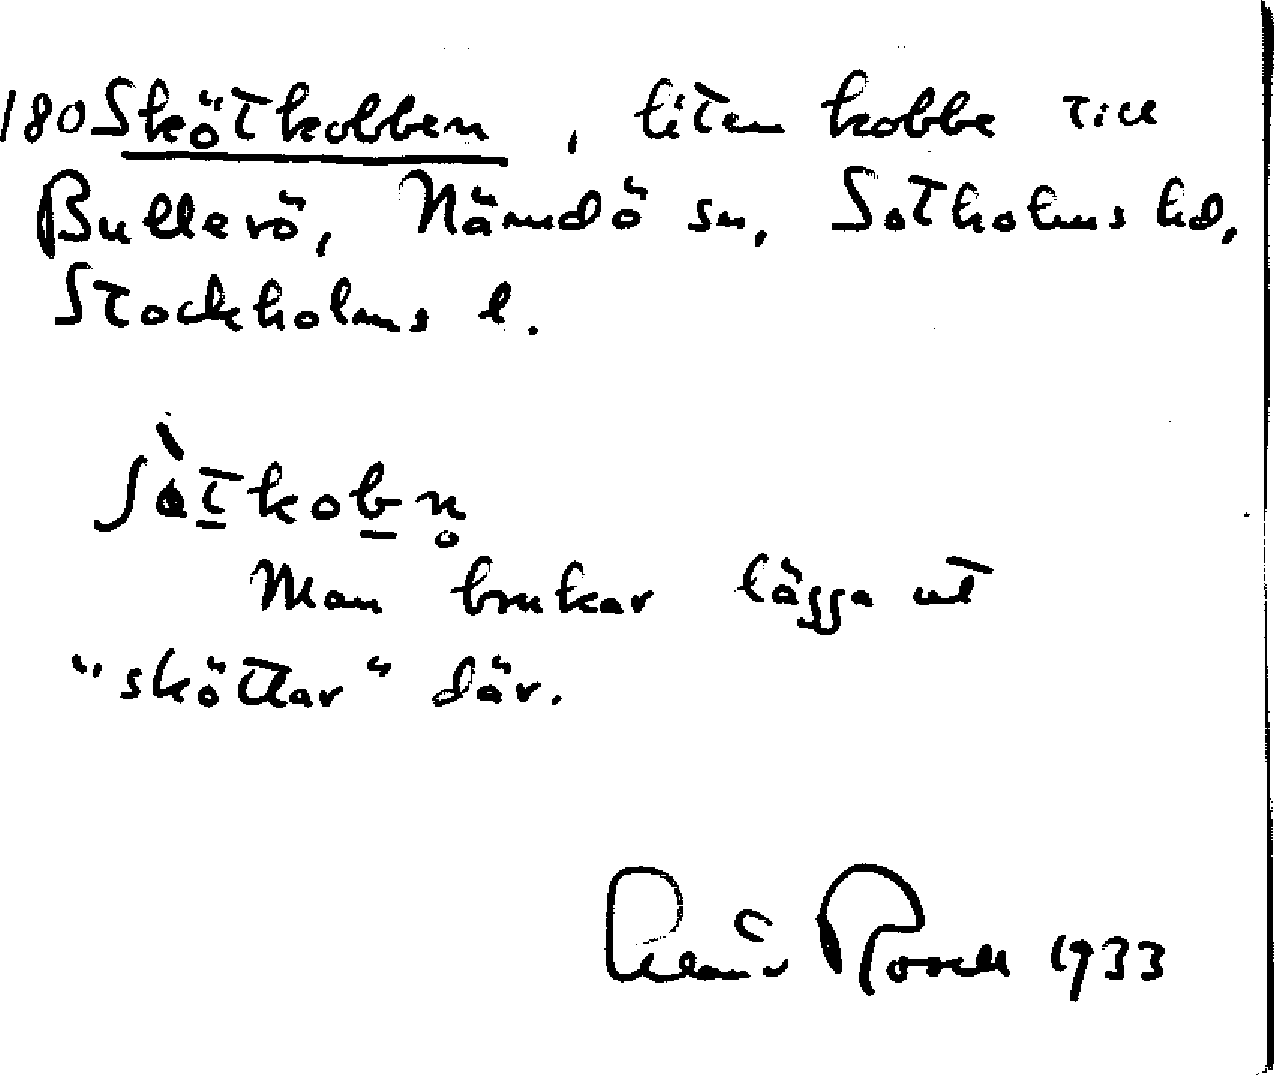 180 Skötkobben, liten kobbe till
Bullerö, Nämdö sn, Sotholms hd,
Stockholms l.
Man brukar lägga ut
"sköttar" där.
1933